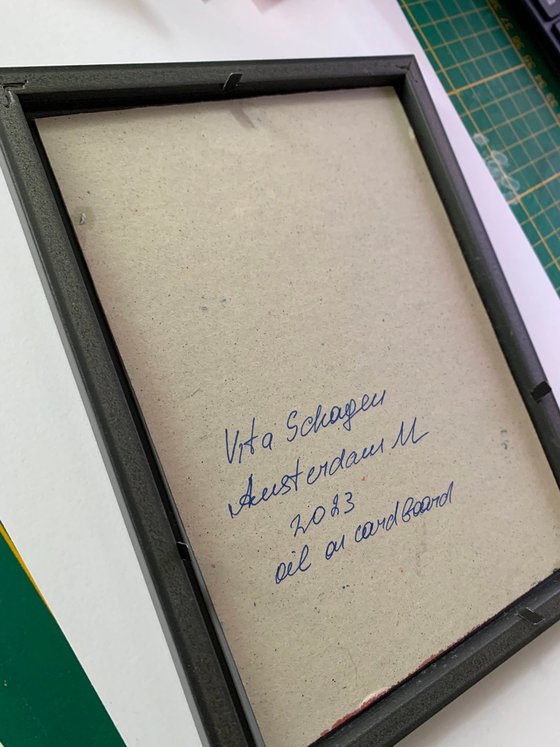 Vita Schagen
Amsterdam NL
2023
oil on cardboard